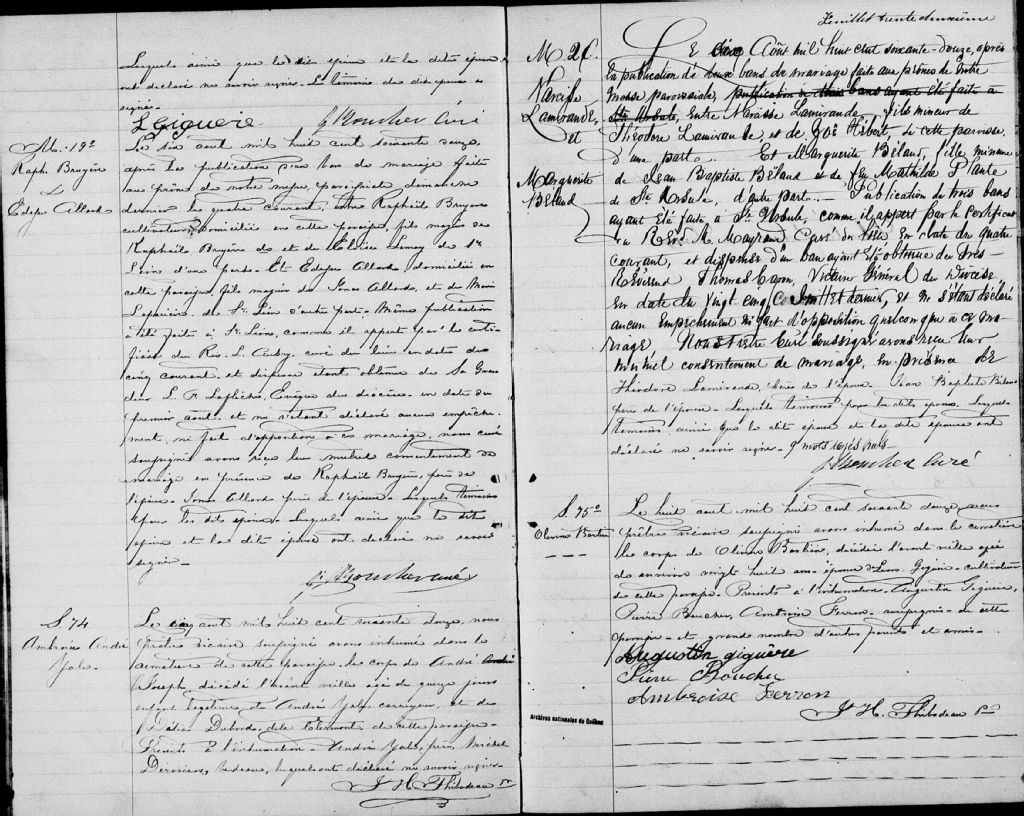 Lesquels ainsi que le dit époux et la dite épouse
ont déclaré ne savoir signer. L. témoin de dit époux a
signé.
L Giguere J Boucher Curé
M. 19e
Raph. Bruyère
&
Edesse Allard
Le six aout mil huit cent soixante douze,
après la publication d'un ban de mariage faite
aux prônes de notre messe paroissiale dimanche
dernier le quatre courant, entre Raphaël Bruyère
cultivateur, domicilié en cette paroisse, fils majeur de
Raphaël Bruyère de et de de St
Léon d'une part. Et Allard, domiciliée en
cette paroisse, fille majeure de Allard, et de Marie
de St Léon d'autre part. Même publication
a été faite à St Léon, comme il appert par le certi-
ficat du Rév. L. Aubry, curé du lieu en date du
cinq courant et dispense étant obtenue de Sa Grandeur
L. F. Laflèche, Evêque du diocèse en date du
premier aout et ne s'étant déclaré aucun empêche-
ment, ni fait d'opposition à ce mariage, nous curé
soussigné avons reçu leur mutuel consentement de
mariage en présence de Raphaël Bruyère, père de
l'époux. Allard père de l'épouse. Lesquels témoins
pour les dits époux. Lesquels ainsi que le dit
époux et la dite épouse ont déclaré ne savoir
signer.
J Boucher curé
S 74
Ambroise André
Yale.
Le cinq aout mil huit cent soixante douze, nous
Prêtre vicaire soussigné avons inhumé dans le
cimetière de cette paroisse le corps de André
Joseph, décédé l'avant veille âgé de quinze jours
enfant légitime de André Yale, corroyeur, et de
Délia Dubord, dite Clermont de cette paroisse.
Présents à l'inhumation André Yale, père, Michel
bedeau, lesquels ont déclaré ne savoir signer.
J H Thibodeau Ptre
Feuillet trente deuxième
M 20
Narcisse
Lamirande,
et
Marguerite
Béland
Le cinq Août mil huit cent soixante-douze, après
la publication de deux bans de mariage faite aux prônes de notre
messe paroissiale, publication de trois bans ayant été faite à
Ste Ursule, Entre Narcisse Lamirande fils mineur de
Théodore Lamirande et de Zoé Hébert, de cette paroisse,
d'une part. Et Marguerite Béland, fille mineure
de Jean Baptiste Béland et de feu Mathilde Plante
de Ste Ursule, d'autre part. — Publication de trois bans
ayant été faite à Ste Ursule, comme il appert par le certificat
du Révd. M. Mayrand Curé du lieu en date du quatre
courant, et dispense d'un ban ayant été obtenue du Très-
Révérend Thomas Caron, Vicaire Général du Diocèse
en date du vingt cinq Juillet dernier, et ne s'étant déclaré
aucun empêchement ni fait d'opposition quelconque à ce ma-
riage Nous Prêtre Curé soussigné avons reçu leur
mutuel consentement de mariage, en présence de
Théodore Lamirande, père de l'époux. Jean Baptiste Béland
père de l'épouse. Lesquels témoins pour les dits époux. Lesquels
témoins ainsi que le dit époux et la dite épouse ont
déclaré ne savoir signer. 9 mots rayés nuls
J Boucher Curé
S. 75e
Olivine Bastien
Le huit aout mil huit cent soixante douze nous
Prêtre vicaire soussigné avons inhumé dans le cimetière
le corps de Olivine Bastien, décédée l'avant veille âgée
de environ vingt huit ans épouse de Léon Giguère cultivateur
de cette paroisse. Présents à l'inhumation Augustin Giguère,
Pierre Boucher, Ambroise Ferron soussignés de cette
paroisse et grand nombre d'autres parents et amis.
Augustin giguère
Pierre Boucher
Ambroise Ferron
J H. Thibodeau Ptre
Archives nationales du Québec